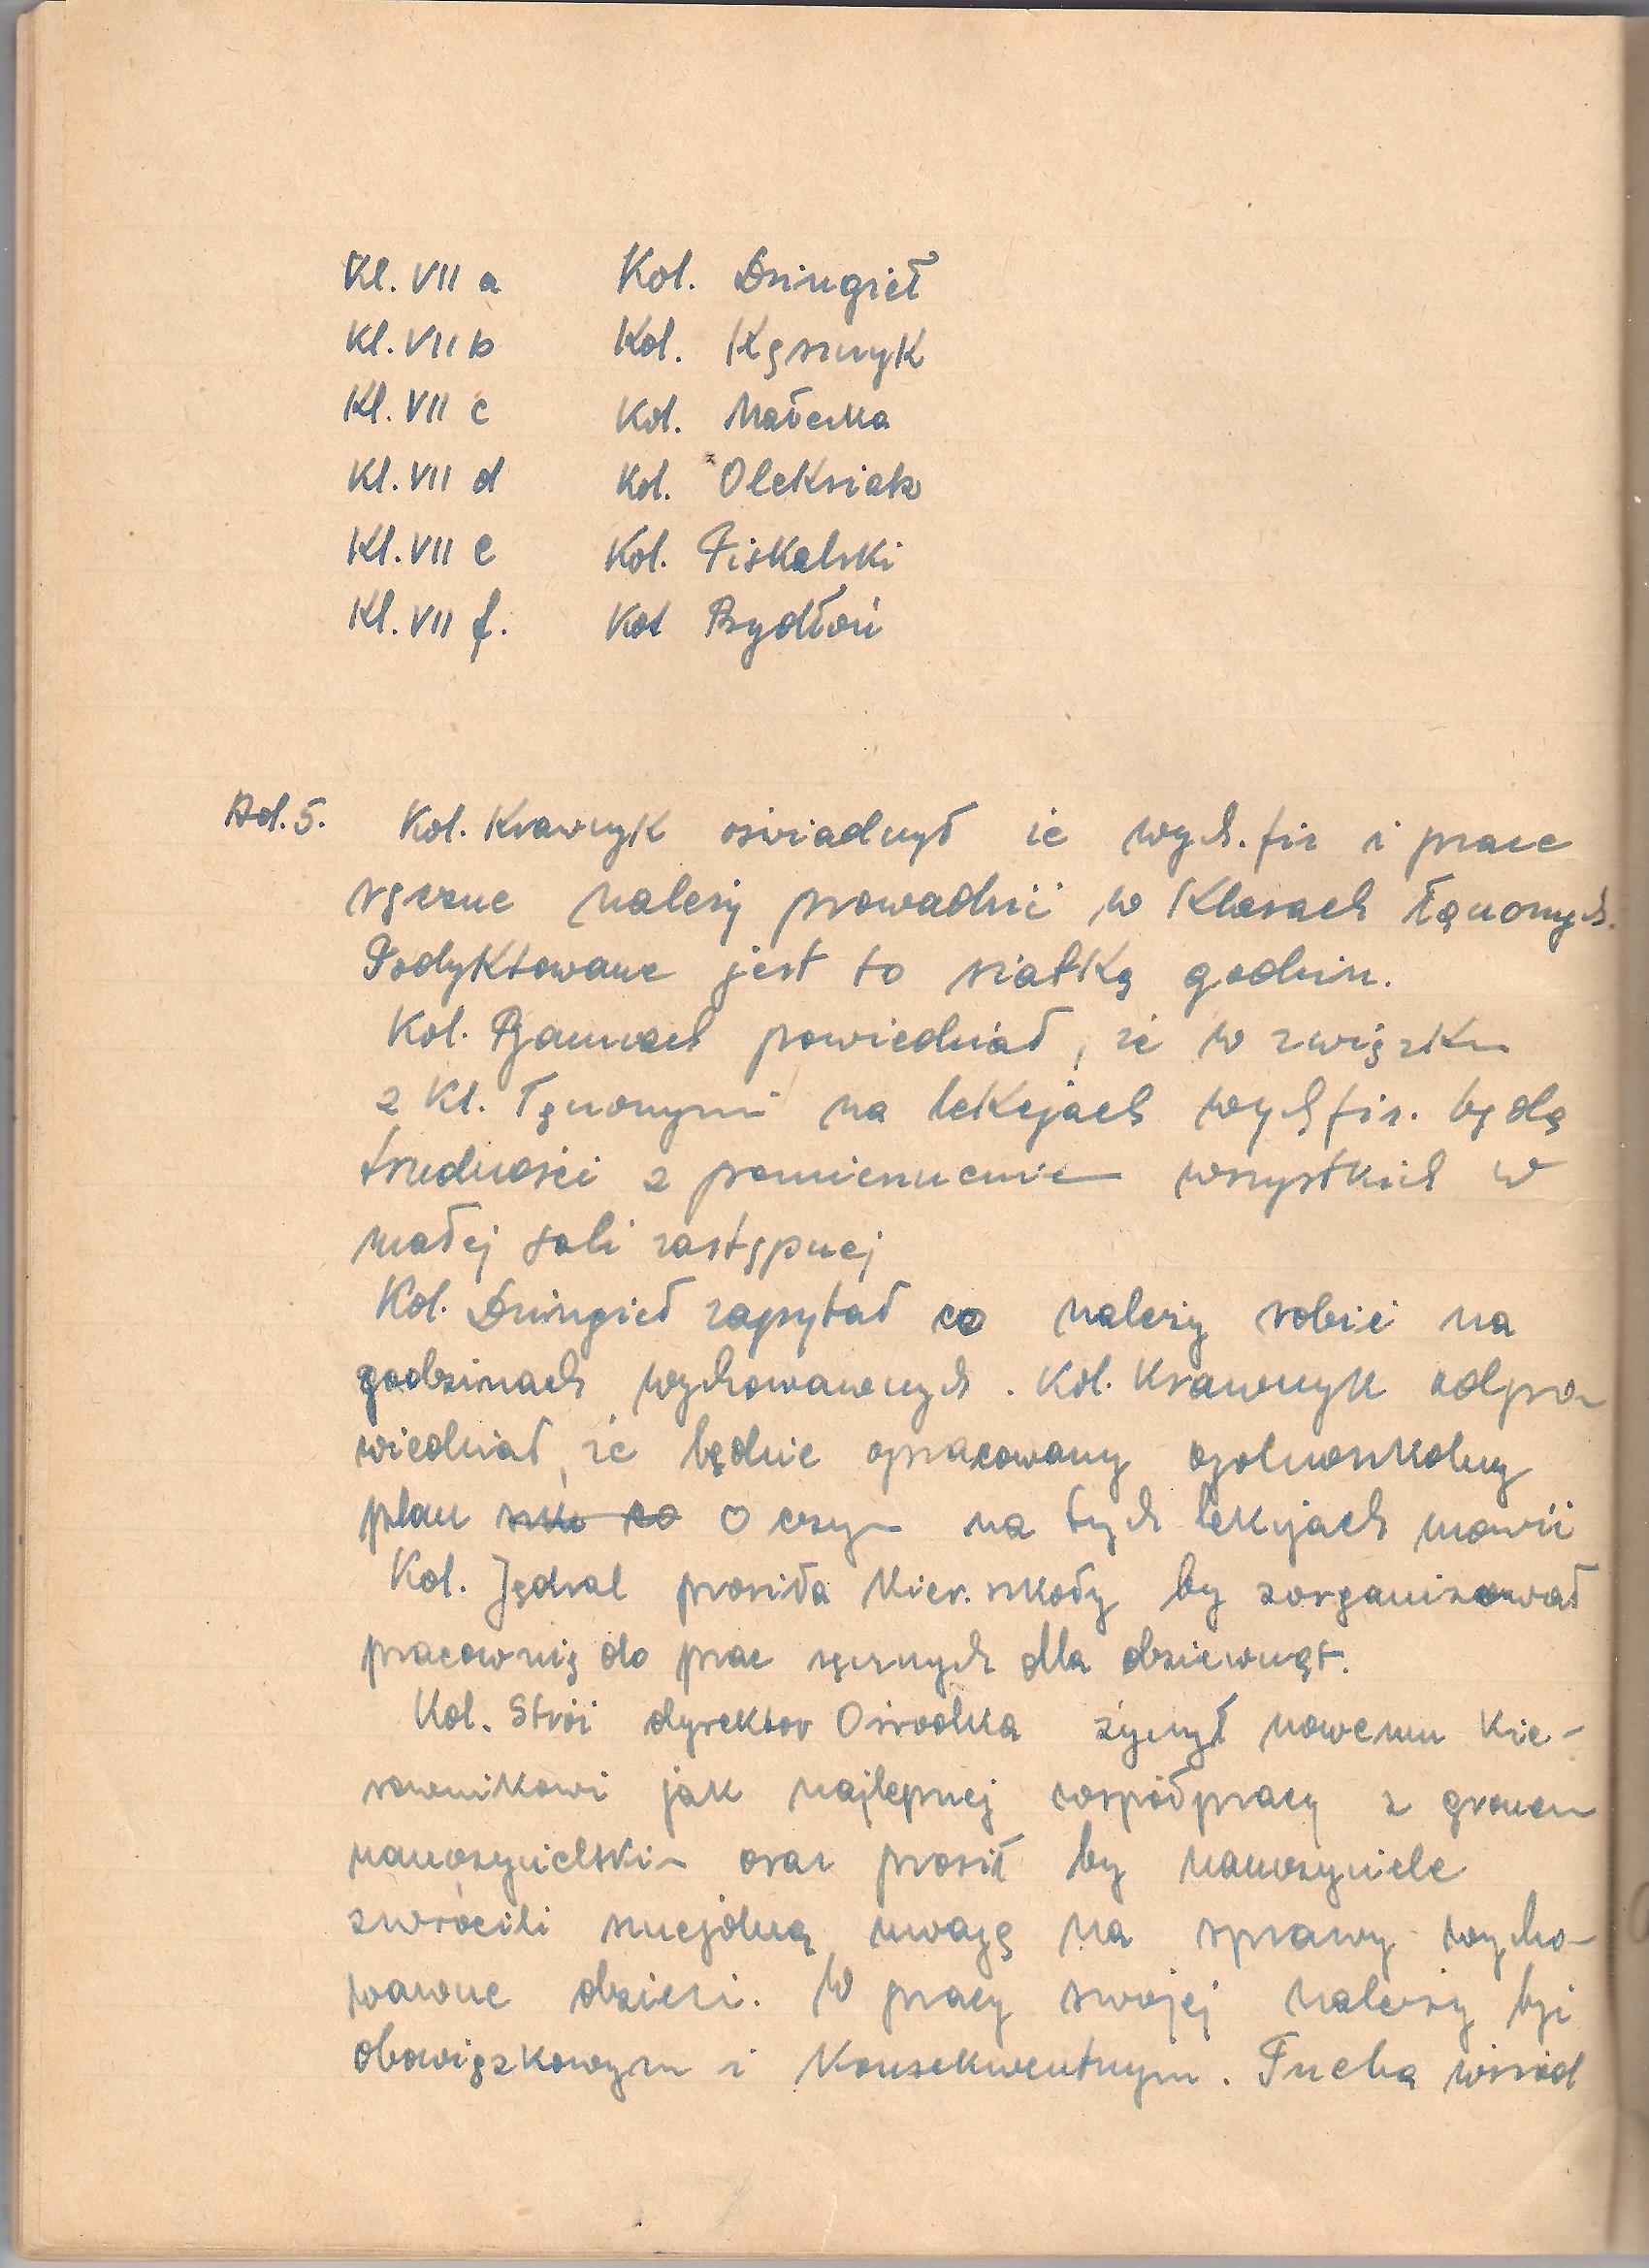 Kl. VII a Kol. Dzingieł
Kl. VII b Kol. Kęszczyk
Kl. VII c Kol. Małecka
Kl. VII d Kol. Oleksiak
Kl. VII e Kol. Fiskalski
Kl. VII f. Kol Bydłoń
Ad. 5. Kol. Krawczyk oświadczył że wych. fiz i prace
ręczne należy prowadzić w klasach łącznonych.
Podyktowane jest to siatką godzin.
Kol. powiedział, że w związku
z kl. łącznonymi na lekcjach wych fiz. będą
trudności z pomieszczeniem wszystkich w
małej sali zastępczej
Kol. Dzingieł zapytał co należy robić na
godzinach wychowawczych. Kol. Krawczyk odpo-
wiedział, że będzie opracowany ogólnoszkolny
plan o czym na tych lekcjach mówić
Kol. Jędral prosiła kier. szkoły by zorganizował
pracownię do prac ręcznych dla dziewcząt.
Kol. Strój dyrektor Ośrodka życzył nowemu kie-
rownikowi jak najlepszej współpracy z gronem
nauczycielskim oraz prosił by nauczyciele
zwrócili szczególną uwagę na sprawy wycho-
wawcze dzieci. W pracy swojej należy być
obowiązkowym i konsekwentnym. Trzeba wśród